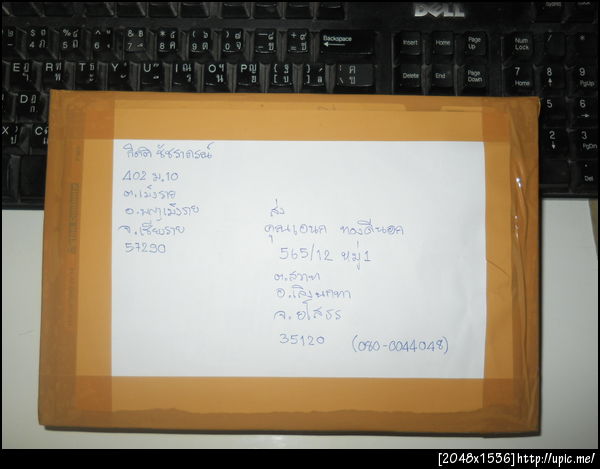 DELL
Backspace
Insert Home Page Up
Num Lock
Delete End Page Down
7 Home 8 9 PgUp
กิตติ ชัชราภรณ์
402 ม.10
ต.เม็งราย
อ.พญาเม็งราย
จ.เชียงราย
57290
ส่ง
คุณเอนก ทองดีนอก
565/12 หมู่1
ต.สวาท
อ.เลิงนกทา
จ.ยโสธร
35120 (080-0044048)
[2048x1536]http://upic.me/